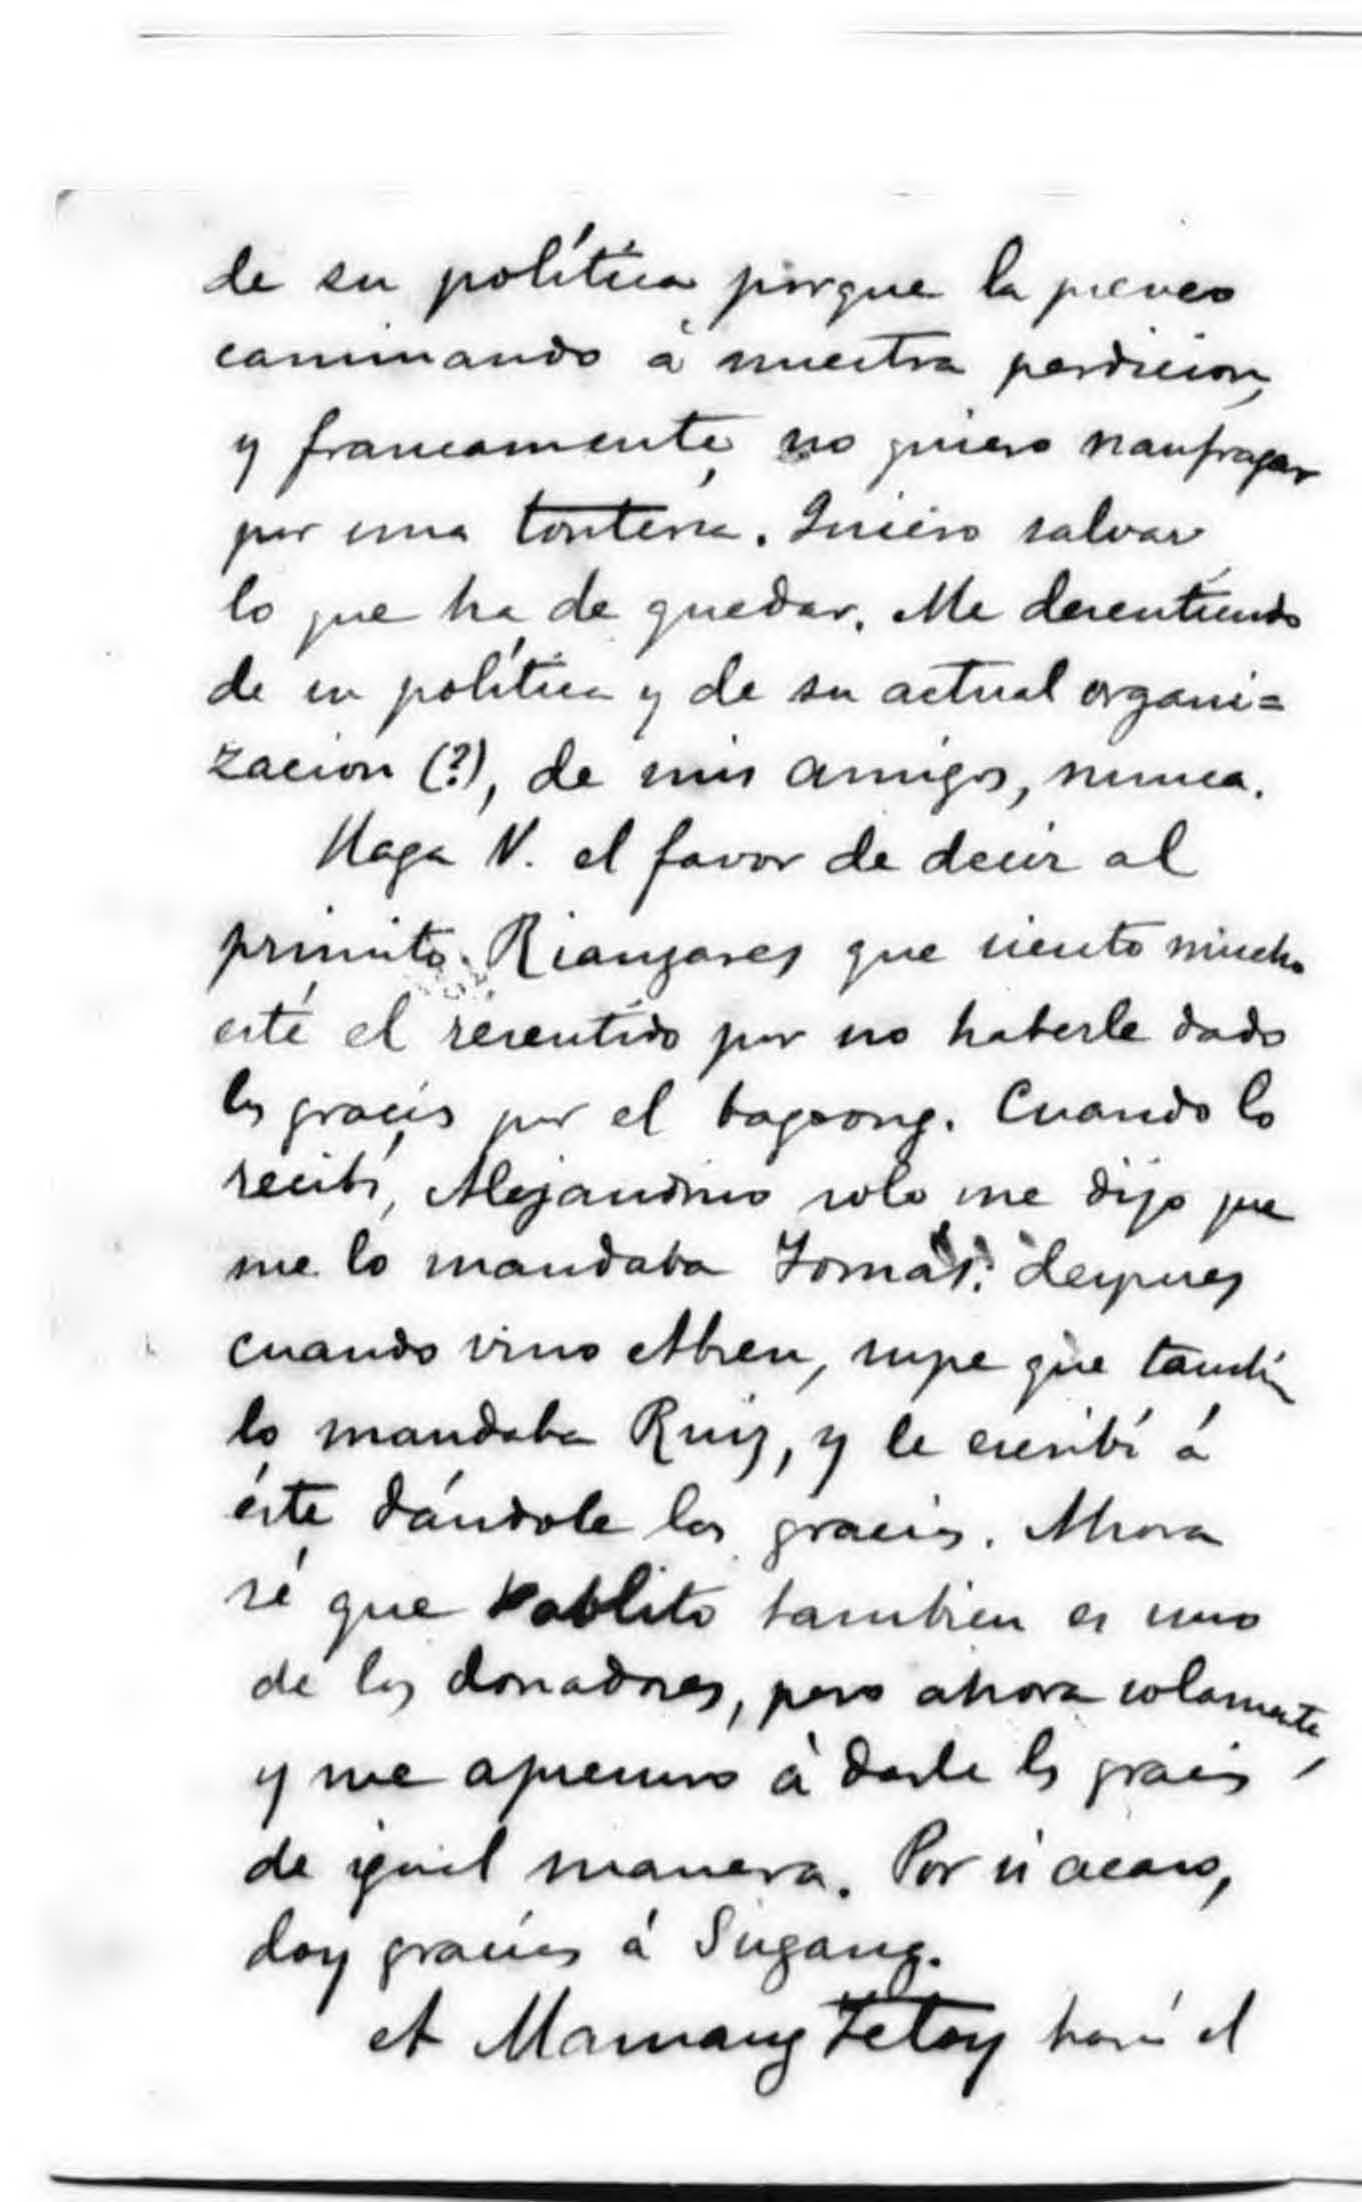 de su política porque la preveo
caminando á nuestra perdicion,
y francamente, no quiero naufragar
por una tontería. Quiero salvar
lo que ha de quedar. Me desentiendo
de su política y de su actual organi=
zacion (?), de mis amigos, nunca.
Haga V. el favor de decir al
primito Rianzares que siento mucho
esté el resentido por no haberle dado
las gracias por el bagoong. Cuando lo
recibí, Alejandrino solo me dijo que
me lo mandaba Tomás. despues
cuando vino Abreu, supe que también
lo mandaba Ruiz, y le escribí á
éste dándole las gracias. Ahora
sé que Pablito tambien es uno
de los donadores, pero ahora solamente,
y me apresuro á darle las gracias
de igual manera. Por si acaso,
doy gracias á Sugang.
A Mamang Tetay hará el